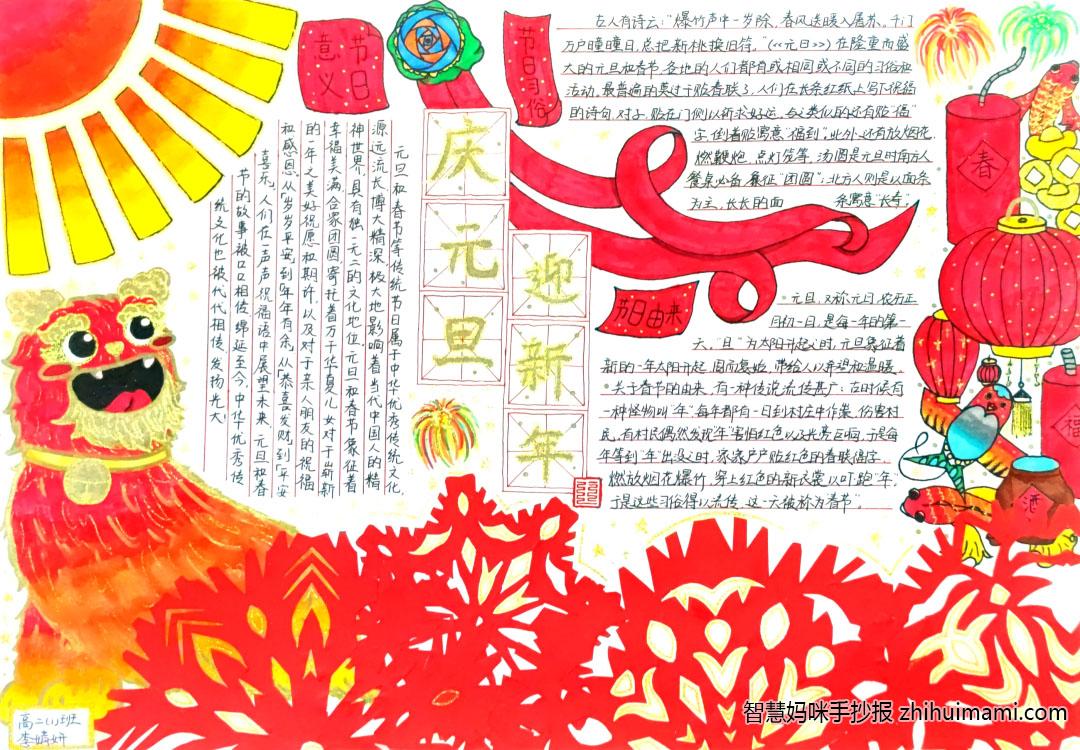 节日
意义
节日习俗
古人有诗云:“爆竹声中一岁除,春风送暖入屠苏。千门
万户曈曈日,总把新桃换旧符。”(《元日》)在隆重而盛
大的元旦和春节,各地的人们都有或相同或不同的习俗和
活动。最普遍的莫过于贴春联了,人们在长条红纸上写下祝福
的诗句、对子,贴在门侧以祈求好运。与之类似的还有贴“福”
字,倒着贴寓意“福到”。此外还有放烟花、
燃鞭炮、点灯笼等。汤圆是元旦时南方人
餐桌必备,象征“团圆”;北方人则是以面条
为主,长长的面条寓意“长寿”。
庆元旦
迎新年
元旦和春节等传统节日属于中华优秀传统文化,
源远流长、博大精深,极大地影响着当代中国人的精
神世界,具有独一无二的文化地位。元旦和春节象征着
幸福美满、合家团圆,寄托着万千华夏儿女对于崭新
的一年之美好祝愿和期许,以及对于亲人朋友的祝福
和感恩。从「岁岁平安」到「年年有余」,从「恭喜发财」到「平安
喜乐」,人们在一声声祝福语中展望未来。元旦和春
节的故事被口口相传,绵延至今,中华优秀传
统文化也被代代相传、发扬光大。
节日由来
元旦,又称元日,农历正
月初一日,是每一年的第一
天。“旦”为太阳升起之时,元旦象征着
新的一年太阳升起,周而复始,带给人以希望和温暖。
关于春节的由来,有一种传说流传甚广:古时候有
一种怪物叫“年”,每年都有一日到村庄中作祟、伤害村
民。有村民偶然发现“年”害怕红色以及光亮巨响,于是每
年等到“年”出没之时,家家户户贴红色的春联福字、
燃放烟花爆竹、穿上红色的新衣裳以吓跑“年”。
于是这些习俗得以流传,这一天被称为春节。
春
福
酒
高二(1)班
李婧妍
智慧妈咪手抄报 zhihuimami.com